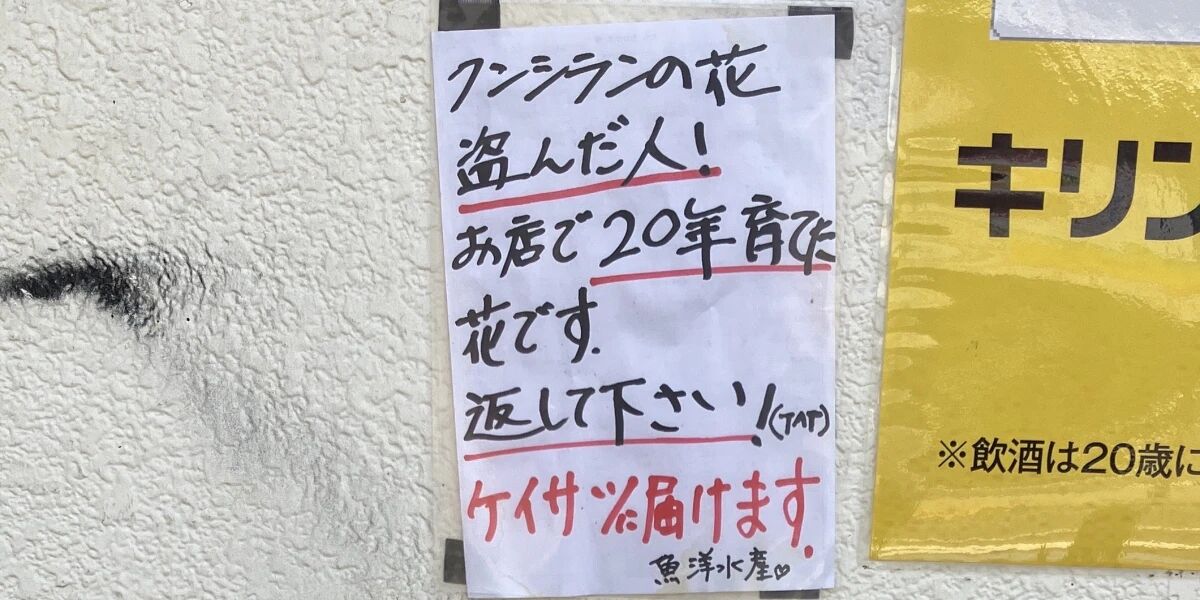 クンシランの花
盗んだ人!
お店で20年育てた
花です.
返して下さい!(T^T)
ケイサツに届けます.
魚洋水産♡
キリン
※飲酒は20歳に